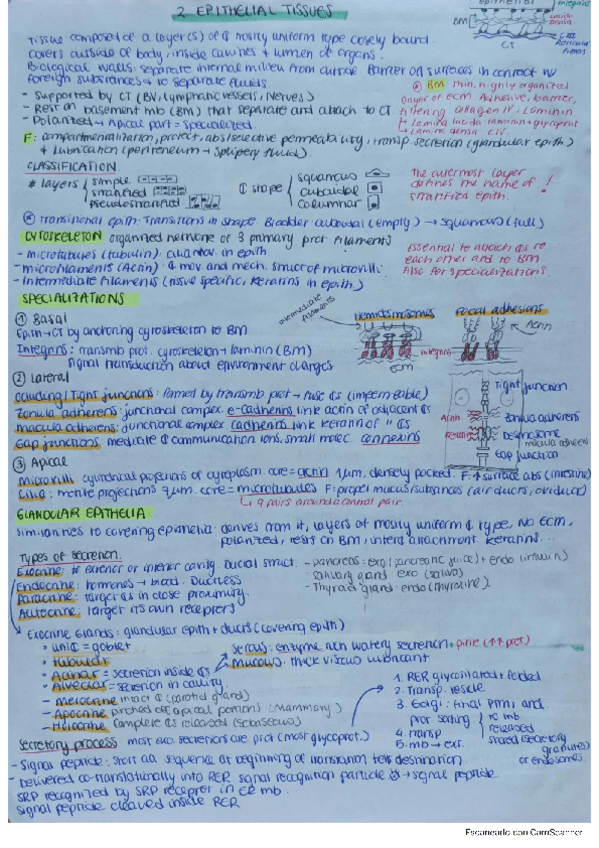 2. EPITHELIAL TISSUES
Tissue composed of a layer(s) of ₵ mostly uniform type closely bound.
Covers outside of body, inside cavities + lumen of organs.
Biological walls: separate internal milieu from outside Barrier on surfaces in contact w/
foreign substances + to separate fluids
- Supported by CT (BV, lymphatic vessels, Nerves)
- Rest on basement mb (BM) that separate and attach to CT.
- Polarized → Apical part = specialized
F: compartmentalization, protect, abs (selective permeability), transp secretion (glandular epith)
& lubrication (peritoneum → slippery fluid).
epithelial
integrins
BM
lucida
densa
CIII
Reticular
fibers
CT
BM thin, highly organized
layer of ECM Adhesive, barrier,
filtering collagen IV, laminin
→ lamina lucida laminin + glycoprot
→ lamina densa CIV
CLASSIFICATION
# layers
simple
stratified
pseudostratified
₵ shape
squamous
cuboidal
columnar
The outermost layer
defines the name of !
stratified epith.
Transitional epith: Transitions in shape Bladder cuboidal (empty) → squamous (full)
CYTOSKELETON organized network of 3 primary prot filaments
- Microtubules (tubulin) cilia mov. in epith.
- Microfilaments (Actin) ₵ mov and mech. struct of microvilli
- Intermediate filaments (tissue specific, keratins in epith)
essential to attach ₵s to
each other and to BM
Also for specializations.
SPECIALIZATIONS
① Basal
Epith → CT by anchoring cytoskeleton to BM
Integrins: transmb prot. cytoskeleton + laminin (BM)
signal transduction about environment changes
intermediate filaments
Hemidesmosomes
Focal adhesions
Actin
integrins
ECM
② Lateral
Occluding/Tight junctions: formed by transmb prot → fuse ₵s (impermeable)
Zonula adherens: junctional complex e-cadherins link actin of adjacent ₵s
Macula adherens: junctional complex cadherins link keratin of " ₵s
Gap junctions: mediate ₵ communication ions, small molec. connexins
Tight junction
Actin
Zonula adherens
Keratin
Desmosome
macula adherens
Gap junction
③ Apical
Microvilli cylindrical projections of cytoplasm. core = actin 1µm, densely packed. F: ↑ surface abs (intestine)
Cilia: motile projections 9µm. core = microtubules F: propel mucus/substances (air ducts, oviduct)
↳ 9 pairs around a central pair
GLANDULAR EPITHELIA
Similarities to covering epithelia: derives from it, layers of mostly uniform ₵ type, no ECM,
polarized, rests on BM, inter₵ attachment. keratins...
Types of secretion.
Exocrine: # exterior or interior cavity. Ductal struct.
Endocrine: hormones → blood. Ductless
Paracrine: target ₵s in close proximity.
Autocrine: target its own receptors
- Pancreas: exo (pancreatic juice) + endo (insulin)
- Salivary gland exo (saliva)
- Thyroid gland endo (thyroxine)
Exocrine Glands: glandular epith + ducts (covering epith)
• uni₵ = goblet
• Tubular
• Acinar = secretion inside ₵s
• Alveolar = secretion in cavity
- Merocrine intact ₵ (parotid gland)
- Apocrine pinched off apical portions (mammary)
- Holocrine complete ₵s released (sebaceous)
Serous: enzyme rich watery secretion
Mucous: thick viscous lubricant
Secretory process most exo. secretions are prot (most glycoprot.)
1. RER glycosilated + folded
2. Transp. vesicle
3. Golgi: final PTMs and
prot sorting
4. Transp
5. mb → ext.
to mb
released
stored (secretory
granules)
or endosomes.
- Signal peptide: short aa sequence at beginning of translation tells destination
- Delivered co-translationally into RER signal recognition particle → signal peptide
SRP recognized by SRP receptor in ER mb.
signal peptide cleaved inside RER
Escaneado con CamScanner